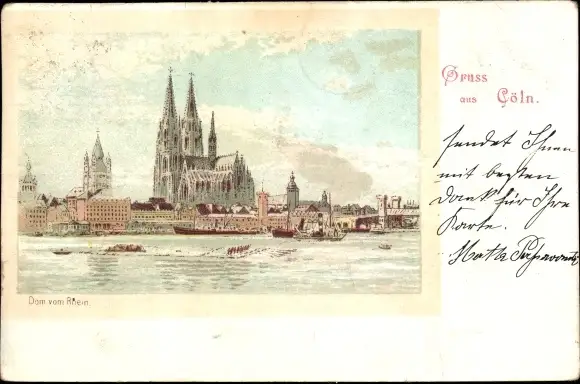 Gruss
aus Cöln.
sendet Ihnen
mit besten
Dank für Ihre
Karte.
Math
Dom vom Rhein.